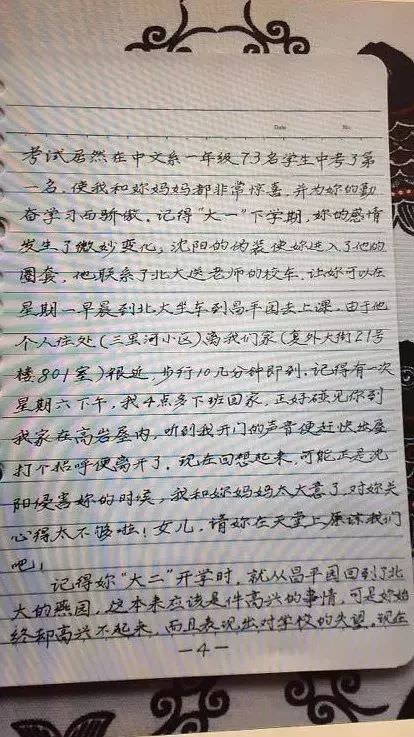 Date No
考试居然在中文系一年级73名学生中考了第
一名,使我和妳妈妈都非常惊喜,并为妳的勤
奋学习而骄傲。记得“大一”下学期,妳的感情
发生了微妙变化,沈阳的伪装使妳进入了他的
圈套,他联系了北大送老师的校车,让妳可以在
星期一早晨到北大坐车到昌平园去上课。由于他
个人住处(三里河小区)离我们家(复外大街21号
楼801室)很近,步行10几分钟即到。记得有一次
星期六下午,我4点多下班回家,正好碰见你到
我家在高岩屋内,听到我开门的声音便赶快出屋
打个招呼便离开了,现在回想起来,可能正是沈
阳侵害妳的时候,我和妳妈妈太大意了,对妳关
心得太不够啦!女儿,请妳在天堂上原谅我们
吧!
记得妳“大二”开学时,就从昌平园回到了北
大的燕园,这本来应该是件高兴的事情,可是妳始
终却高兴不起来,而且表现出对学校的失望,现在
—4—